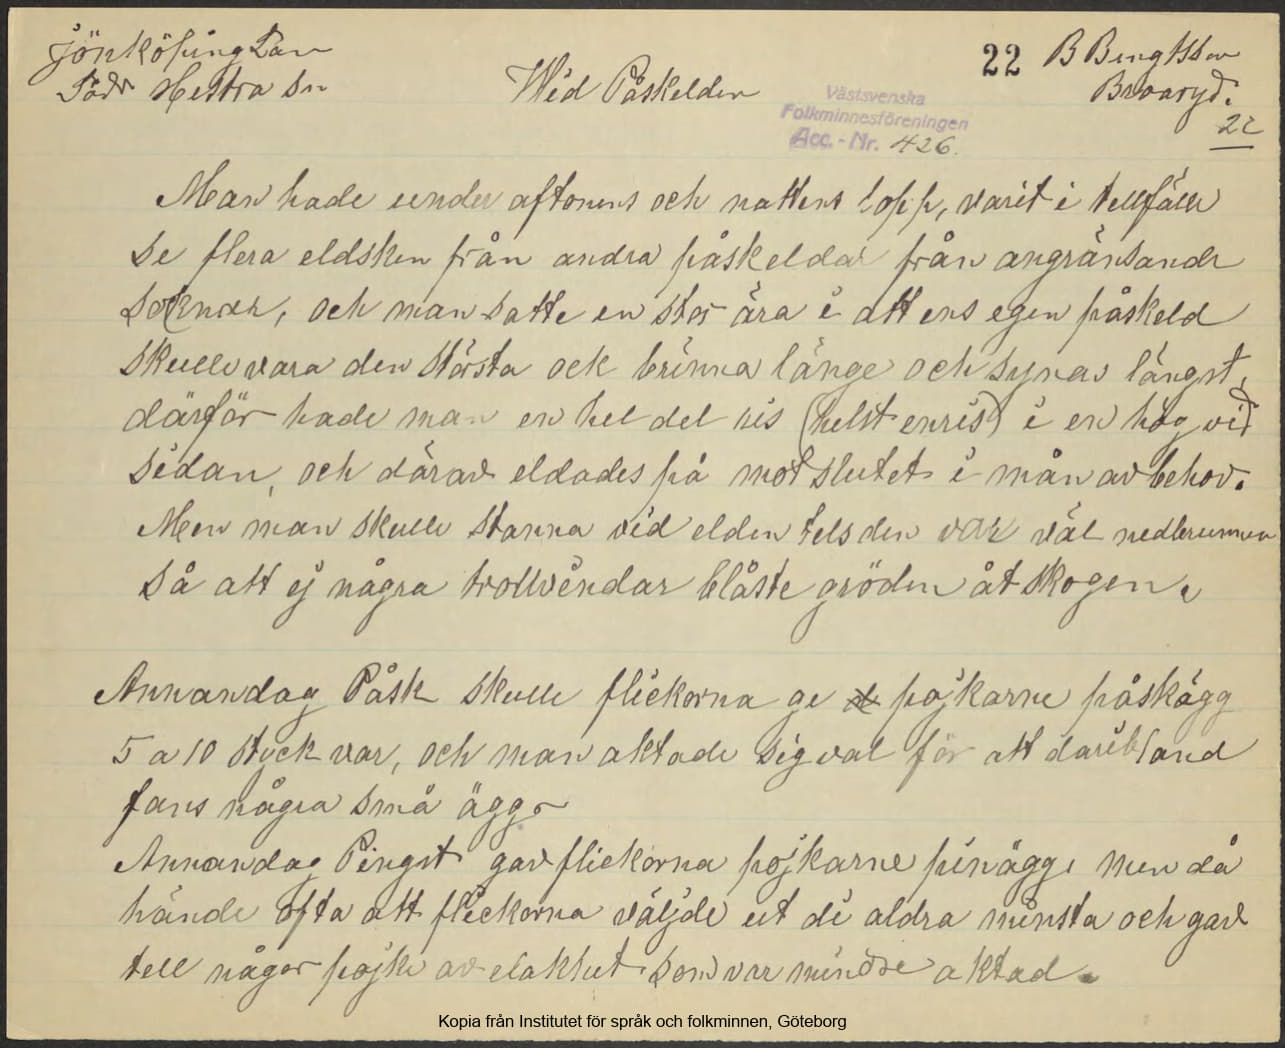 Jönköping Län
22
B Bengtsson
Södr Hestra Sn
Wid Påskelden
Broaryd.
Västsvenska
Folkminnesföreningen
Acc. - Nr. 426.
22
Man hade under aftonens och nattens lopp, varit i tellfälle
se flera eldsken från andra påskeldar från angränsande
soknar, och man satte en stor ära i att ens egen påskeld
skulle vara den största ock brinna länge och synas längst,
därför hade man en hel del ris (helst enris) i en hög vid
sidan, och därav eldades på mot slutet i mån av behov.
Men man skulle stanna vid elden tels den var väl nedbrunnen
så att ej några trollvindar blåste gröden åt skogen.
Annandag Påsk skulle flickorna ge pojkarne påskägg
5 a 10 styck var, och man aktade sig val för att daribland
fans några små ägg.
Annandag Pingst gav flickorna pojkarne pinägg, men då
hände ofta att flickorna väljde ut di aldra minsta och gav
tell någor pojke av elakhet som var mindre aktad.
Kopia från Institutet för språk och folkminnen, Göteborg